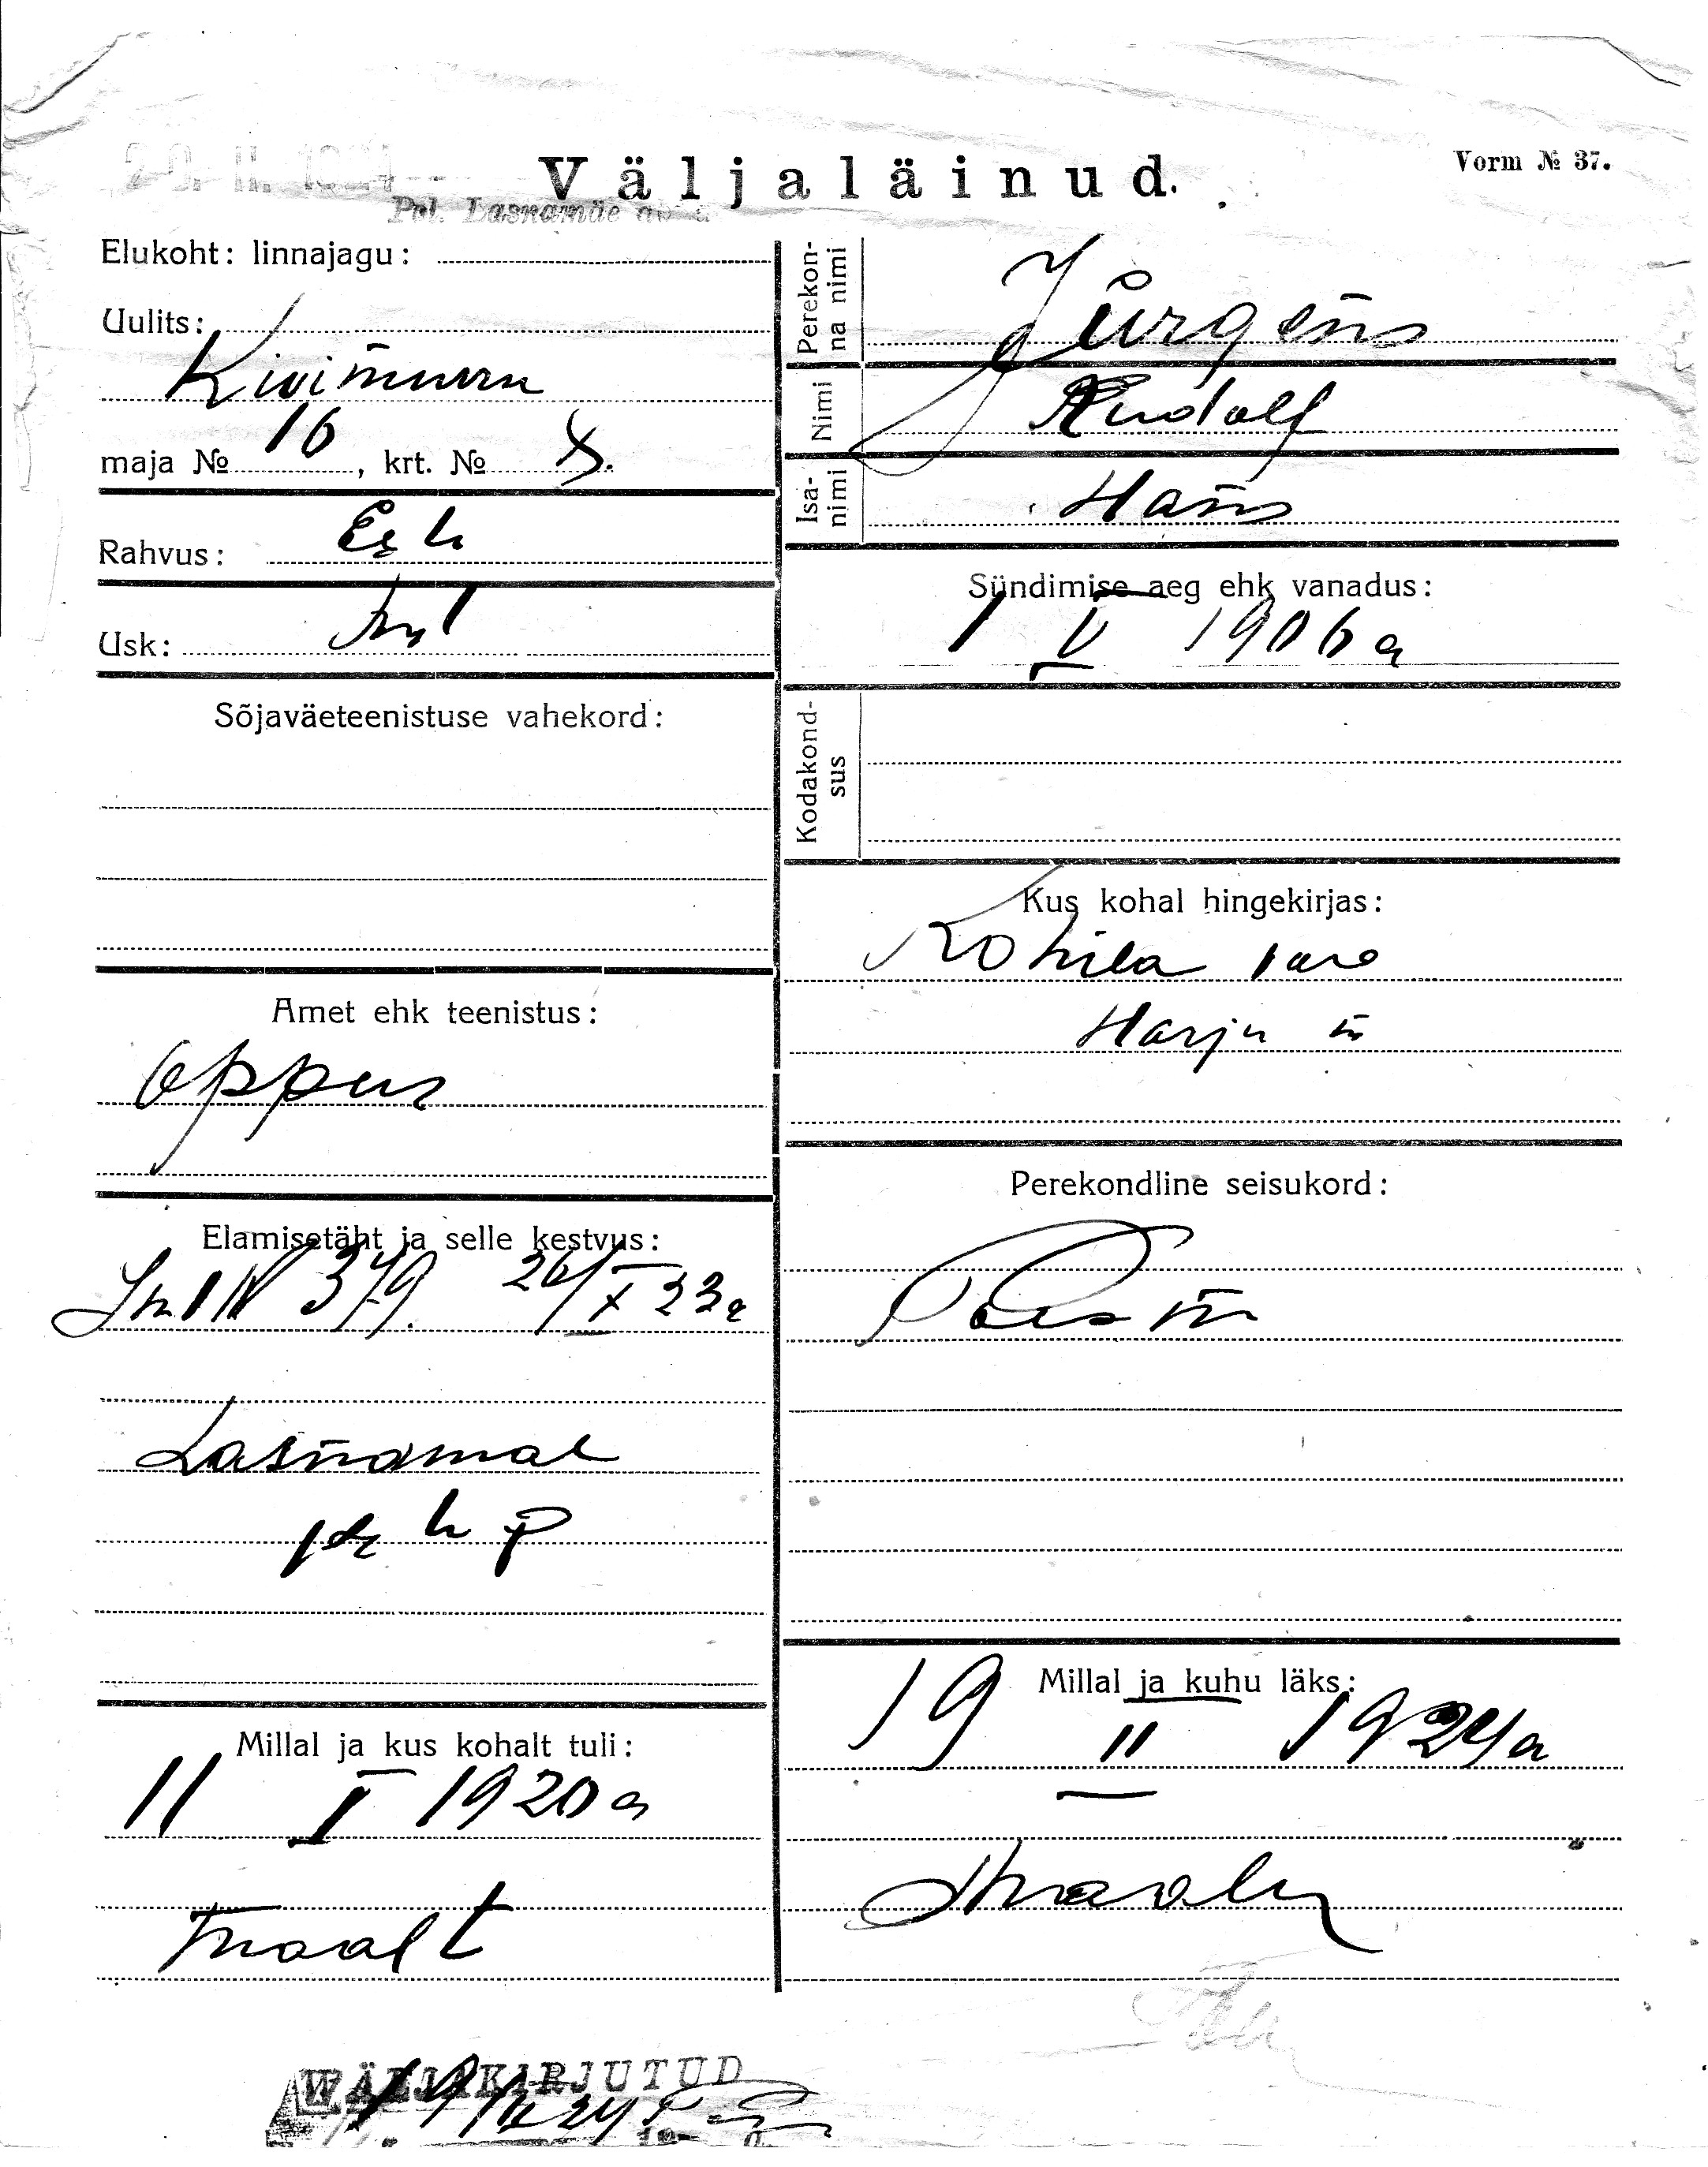 20. II. 1924
Väljaläinud.
Vorm № 37.
Pol. Lasnamäe
Elukoht: linnajagu:
Uulits:
Kivimurru
maja № 16, krt. №
Rahvus: Eesti
Usk:
Sõjaväeteenistuse vahekord:
Amet ehk teenistus:
õppur
Elamisetäht ja selle kestvus:
379. 26/X 23a
Lasnamäe
Millal ja kus kohalt tuli:
11 I 1920 a
maalt
Perekon-
na nimi
Jürgens
Nimi Rudolf
Isa-
nimi
Hans
Sündimise aeg ehk vanadus:
1 V 1906 a
Kodakond-
sus
Kus kohal hingekirjas:
Kohila
Harju m
Perekondline seisukord:
Poism
Millal ja kuhu läks:
19 II 1924 a
maale
WÄLJAKIRJUTUD
19/II 24